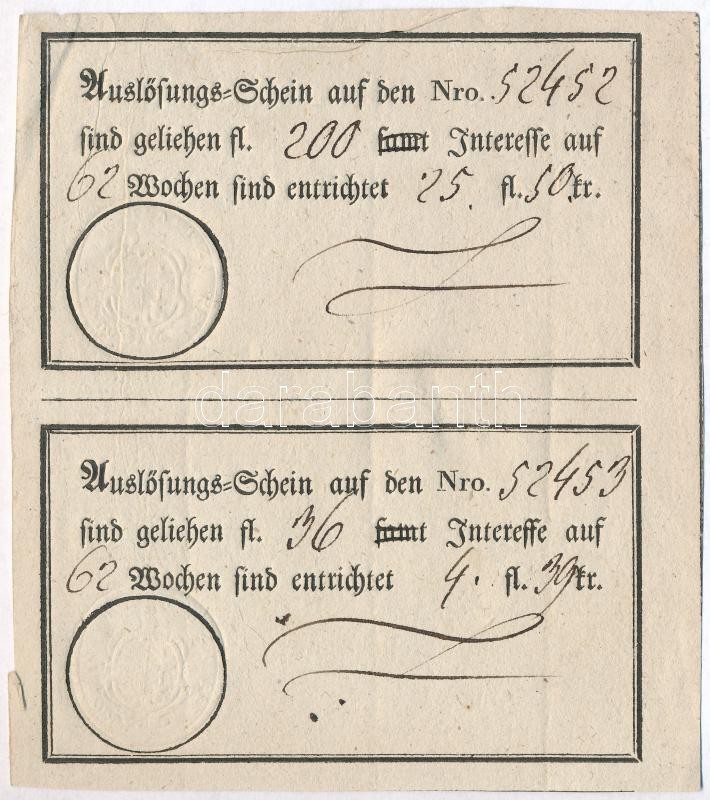 Auslösungs-Schein auf den Nro. 52452
sind geliehen fl. 200 samt Interesse auf
62 Wochen sind entrichtet 25. fl. 50 kr.
darabanth
Auslösungs-Schein auf den Nro. 52453
sind geliehen fl. 36 samt Interesse auf
62 Wochen sind entrichtet 4. fl. 39 kr.